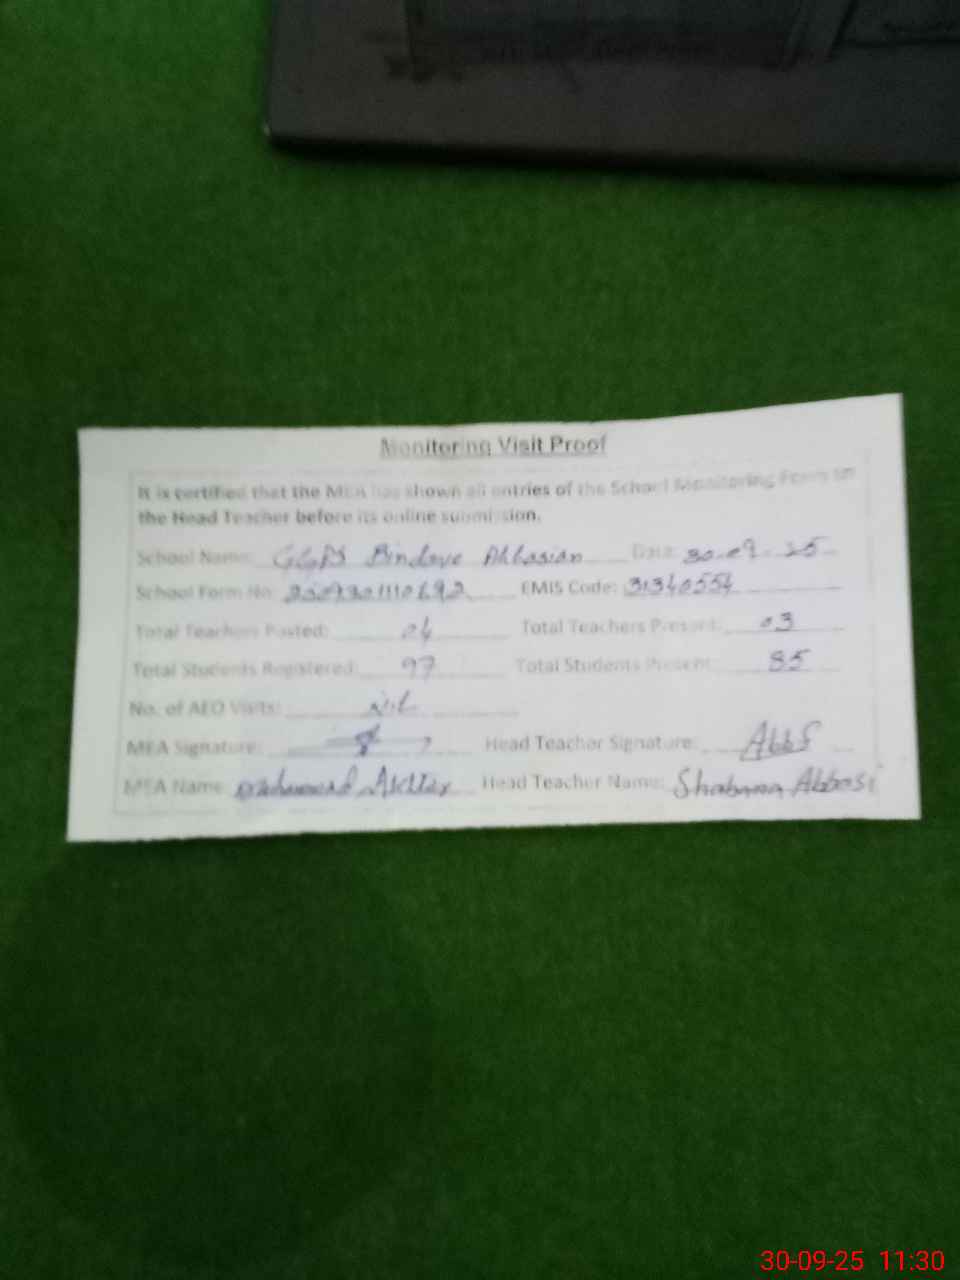 Monitoring Visit Proof
It is certified that the MEA has shown all entries of the School Monitoring Form to
the Head Teacher before its online submission.
School Name: GGPS Abbasian Date: 30-09-25
School Form No: EMIS Code: 31340554
Total Teachers Posted: 04 Total Teachers Present: 03
Total Students Registered: 97 Total Students Present: 85
No. of AEO Visits: Nil
MEA Signature: Head Teacher Signature: Abbs
MEA Name: Muhammad Akhtar Head Teacher Name: Shabana Abbasi
30-09-25 11:30